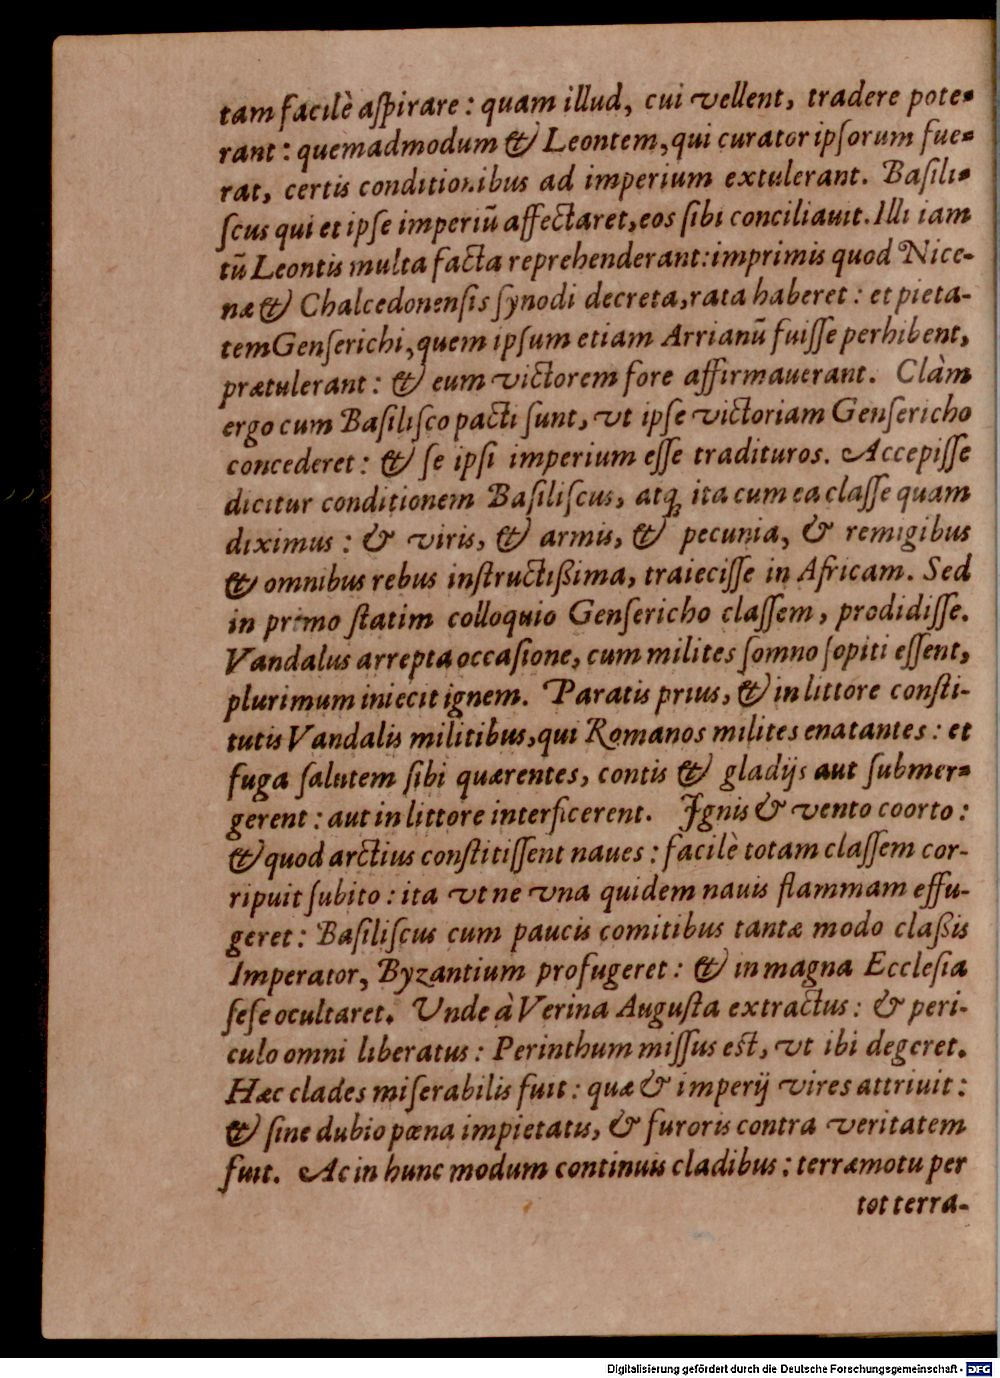 tam facilè aſpirare: quam illud, cui vellent, tradere pote-
rant: quemadmodum & Leontem, qui curator ipſorum fue-
rat, certis conditionibus ad imperium extulerant. Baſili-
ſcus qui et ipſe imperiū affectaret, eos ſibi conciliauit. Illi iam
tū Leontis multa facta reprehenderant: imprimis quod Nice-
næ & Chalcedonenſis ſynodi decreta, rata haberet: et pieta-
tem Genſerichi, quem ipſum etiam Arrianū fuiſſe perhibent,
prætulerant: & eum victorem fore affirmauerant. Clàm
ergo cum Baſiliſco pacti ſunt, vt ipſe victoriam Genſericho
concederet: & ſe ipſi imperium eſſe tradituros. Accepiſſe
dicitur conditionem Baſiliſcus, atq; ita cum ea claſſe quam
diximus: & viris, & armis, & pecunia, & remigibus
& omnibus rebus inſtructißima, traieciſſe in Africam. Sed
in primo ſtatim colloquio Genſericho claſſem, prodidiſſe.
Vandalus arrepta occaſione, cum milites ſomno ſopiti eſſent,
plurimum iniecit ignem. Paratis prius, & in littore conſti-
tutis Vandalis militibus, qui Romanos milites enatantes: et
fuga ſalutem ſibi quærentes, contis & gladijs aut ſubmer-
gerent: aut in littore interficerent. Ignis & vento coorto:
& quod arctius conſtitiſſent naues: facilè totam claſſem cor-
ripuit ſubito: ita vt ne vna quidem nauis flammam effu-
geret: Baſiliſcus cum paucis comitibus tantæ modo claßis
Imperator, Byzantium profugeret: & in magna Eccleſia
ſeſe ocultaret. Unde à Verina Auguſta extractus: & peri-
culo omni liberatus: Perinthum miſſus est, vt ibi degeret.
Hæc clades miſerabilis fuit: quæ & imperij vires attriuit:
& ſine dubio pœna impietatis, & furoris contra veritatem
fuit. Ac in hunc modum continuis cladibus: terræmotu per
tot terra-
Digitalisierung gefördert durch die Deutsche Forschungsgemeinschaft - DFG